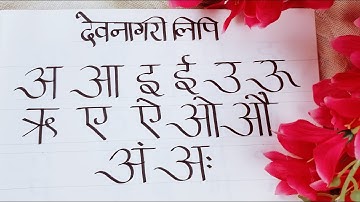 देवनागरी लिपि
अ आ इ ई उ ऊ
ऋ ए ऐ ओ औ
अं अः